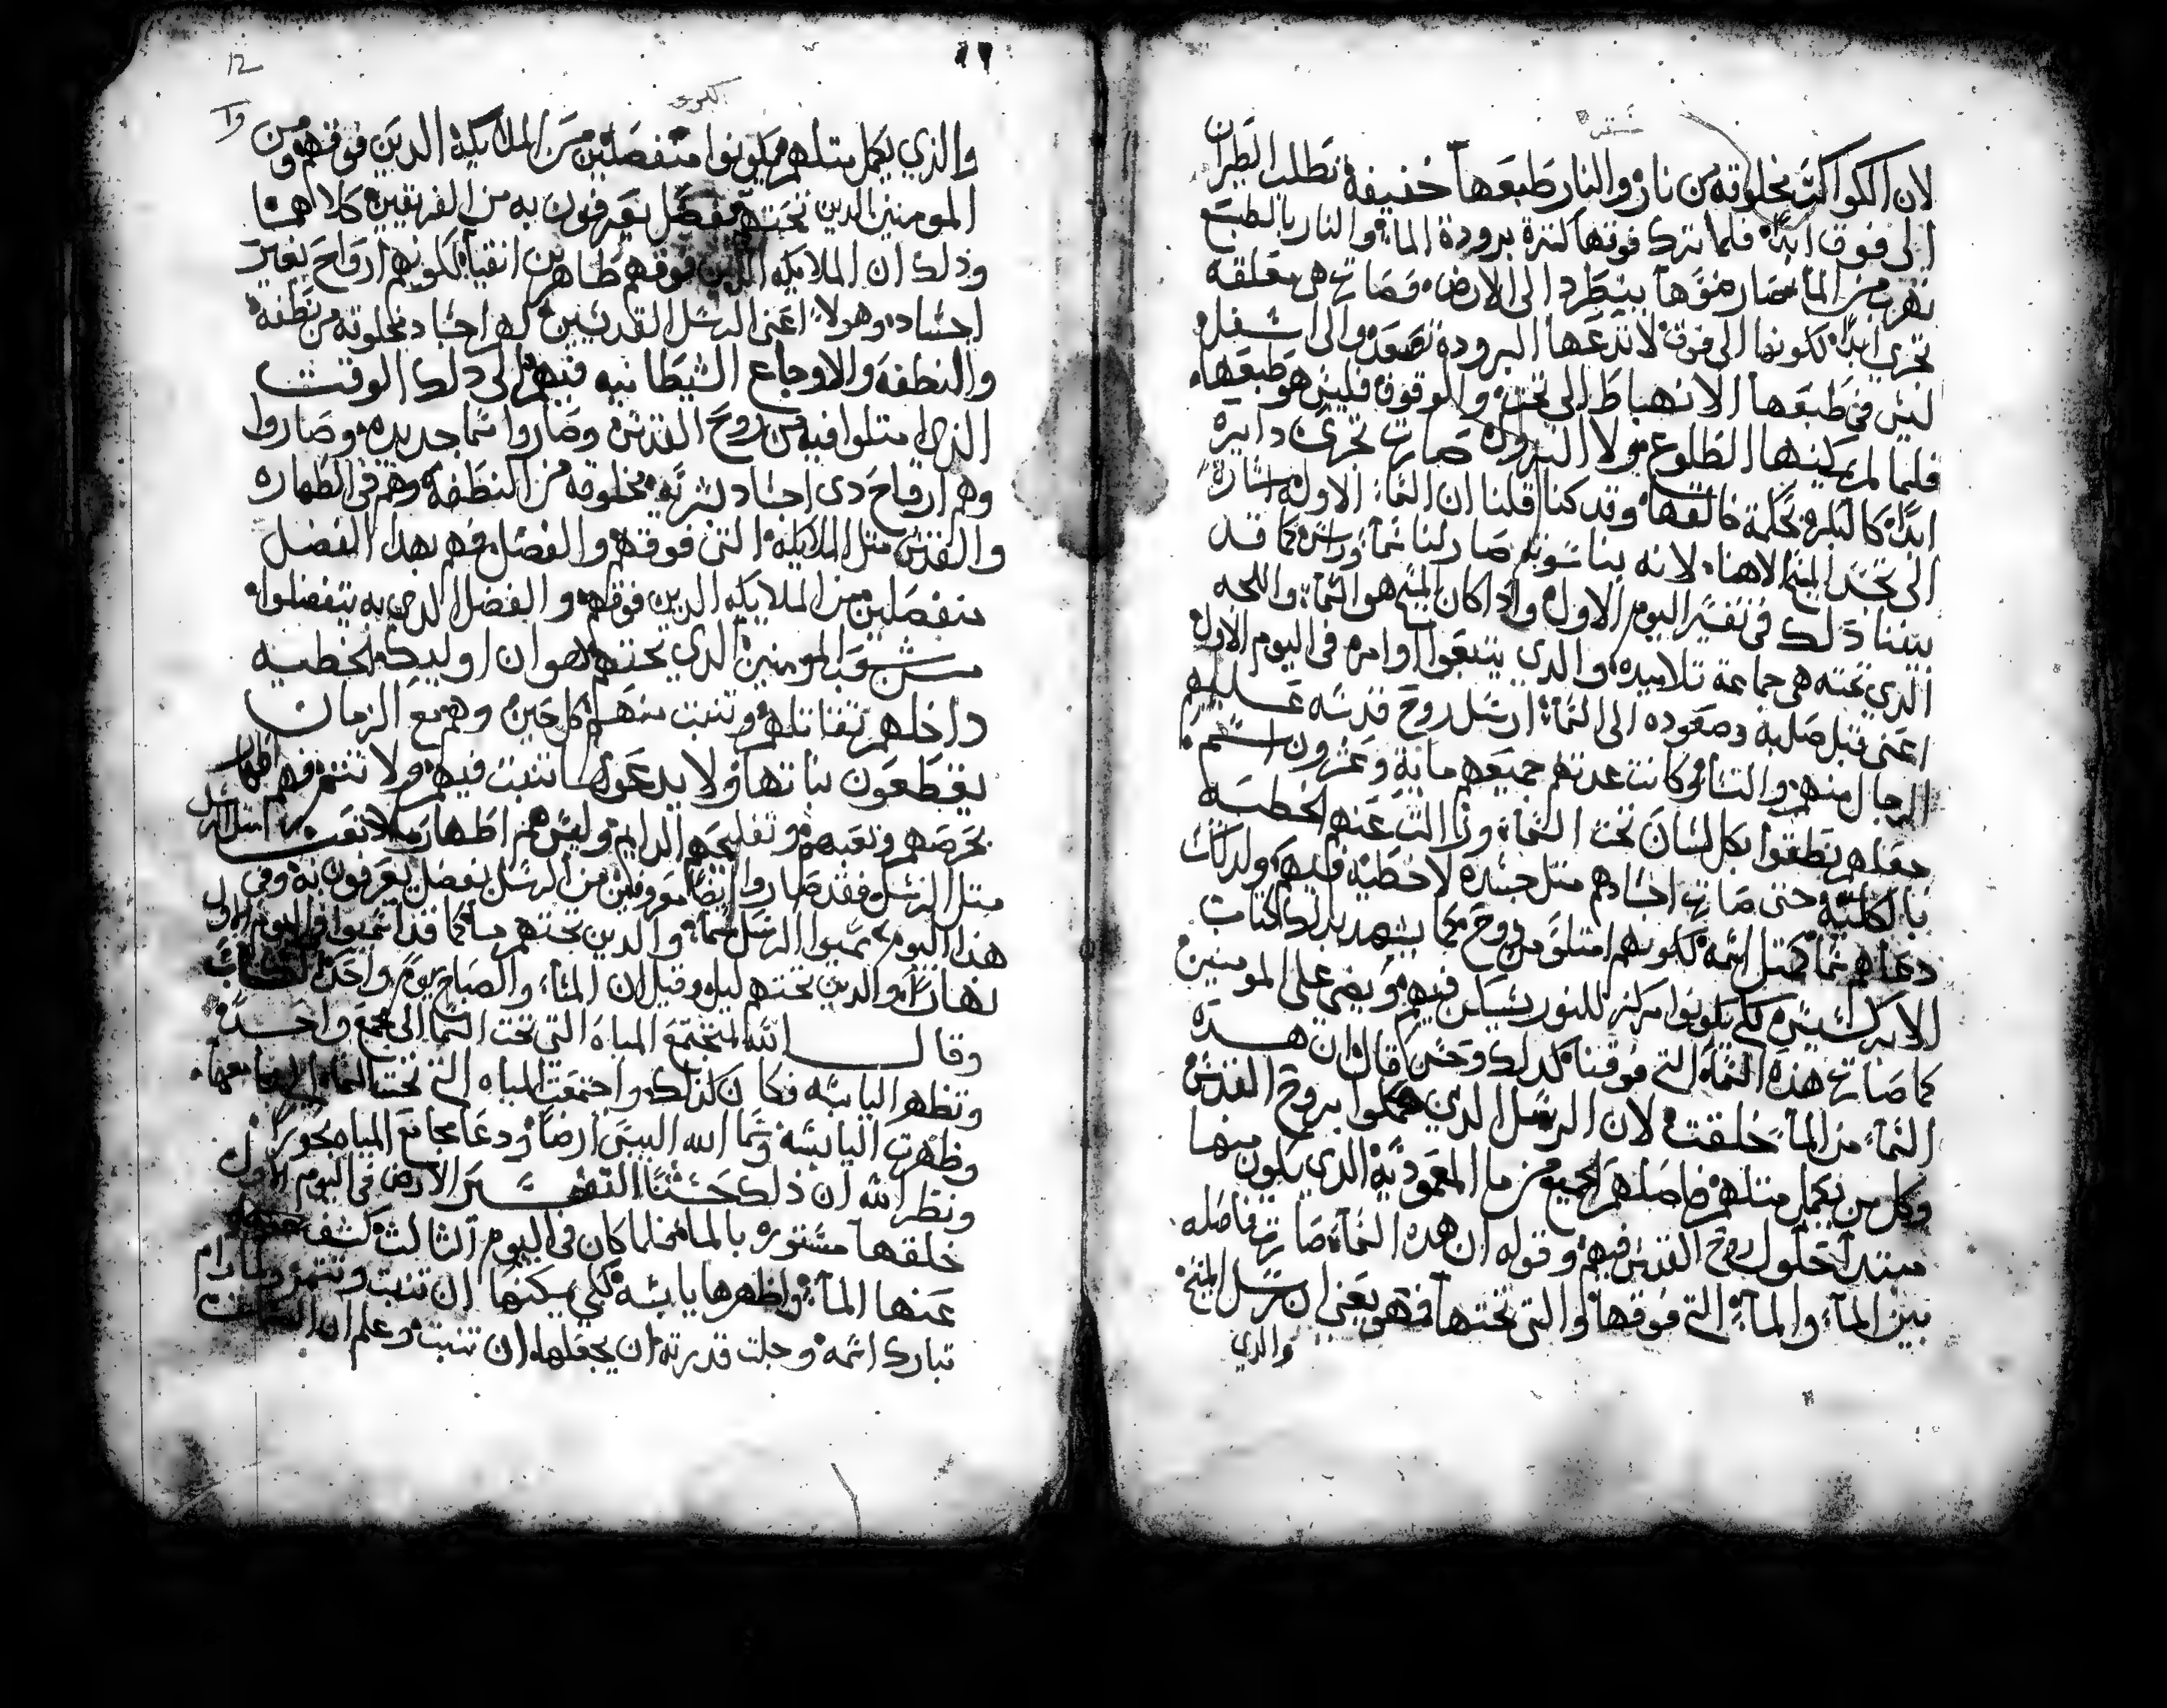 لان الكواكب مخلوقه من نار والنار طبعها خفيفة تطلب الطيران
الى فوق ابدًا فلما تدركـ فوقها كترة برودة الماء والنار بالطبع
تهرب من الما صار ضوها ينطرد الى الارض وصارت هى معلقه
تجرى ابدًا لكونها الى فوق لا تدعها البرودة تصعد والى اسفل
ليس فى طبعها الانهباط الى تحت والوقوف فليس هو طبعها
فلما لم يمكينها الطلوع ولا النزول صارت تجرى دايره
ابدًا كالبكره بحكمة خالقها وقد كنا قلنا ان السما الاوله اشاره
الى تجسد المسيح الاهنا لانه بناسوته صار لنا سماء
بيننا ذلك فى تفسير اليوم الاول واذا كان المسيح هو السماء واللجه
الذي تحته هى جماعة تلاميده والدي يتبعوا اوامره فى اليوم الاول
اعنى قبل صلبه وصعوده الى السماء ارسل روح قدسه عليهم
الرجال منهم والنسا وكانت عدتهم جميعهم مايه وعشرون اسم
جعلهم نطقوا بكل لسان تحت السماء وزالت عنهم الخطيه
بالكليه حتى صارت اجسادهم متل جسده لا خطيه فيهم ولدلك
دعاهم سما كمتل اسمه لكونهم امتلوا من روح كما يشهد بدلك الكتاب
الابركسيس لكى يكونوا مركز للنور يسكن فيهم ويضى على المومنين
كما صارت هذه السماء التى فوقنا كدلك وحتى قال ان هده
السماء من الماء خلقت لان الرسل الدي كملوا بروح القدس
وكل من يكمل متلهم فاصلهم الجميع من ما المعمودية الدي يكون منها
مبتدا حلول روح القدس فيهم وقوله ان هده السماء صارت فاصله
بين الماء والماء التى فوقها والتى تحتها فهو يعنى ان رسل المسيح
والدي
12
والذي يكمل متلهم يكونوا منفصلين من الملايكه الدين فوقهم ومن
المومنين الدين تحتهم بفضل يعرفون به من الفريقين كلاهما
وذلك ان الملايكه الدين فوقهم طاهرين انقيا لكونهم ارواح بغير
اجساد وهولا اعنى الرسل القديسين لهم اجساد مخلوقه من نطفه
والنطفه والاوجاع الشيطانيه فيهم الى دلك الوقت
الذي امتلوا فيه من روح القدس وصاروا سما جديده وصاروا
وهم ارواح دى اجساد بشريه مخلوقه من النطفه وهم فى الطهاره
والقدس متل الملايكه التى فوقهم والفصل فهم بهدا الفضل
منفصلين من الملايكه الدين فوقهم والفضل الدي به يتفضلوا
المومنين الدي تحتهم هو ان اوليك الخطيه
داخلهم تقاتلهم وتنبت منهم كل حين وهم مع الزمان
يقطعون نباتها ولا يدعوها تنبت فيهم ولا تتمر فهم اطهار
بحرصهم وتعبهم وتفليحهم الدايم وليس هم اطهار بلا تعب
متل الرسل فقد صاروا ايضا معروفين من الرسل بفضل يعرفون به وفى
هذا اليوم تسموا الرسل سماء والدين تحتهم ما كما قد اتسموا فى اليوم الاول
نهارًا والدين تحتهم ليل وقيل ان المساء والصباح يوم واحد
وقال الله لتجتمع المياه التى تحت السما الى مجمع واحد
وتظهر اليابسه فكان كذلك واجتمعت المياه التى تحت السما الى مجامعها
وظهرت اليابسة وسما الله اليبس ارضاً ودعا مجامع المياه بحورًا
ونظر الله ان ذلك حسنًا التفسير الارض فى اليوم الاول
خلقها مستوره بالما فلما كان فى اليوم الثالث كشف
عنها الماء واظهرها يابسه لكى يمكنها ان تنبت وتتمر
تبارك اسمه وجلت قدرته ان يجعلها ان تنبت وعلم ان